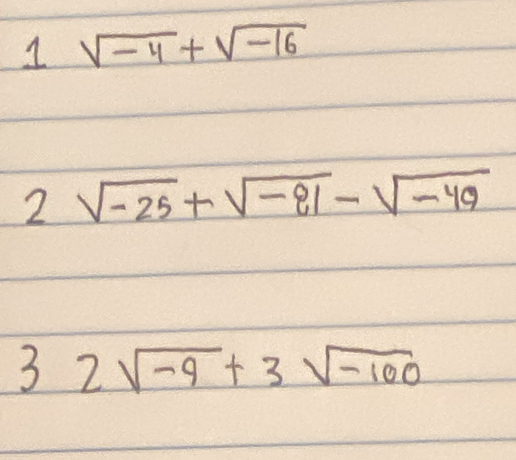 1 √-4 + √-16
2 √-25 + √-81 - √-49
3 2√-9 + 3√-100